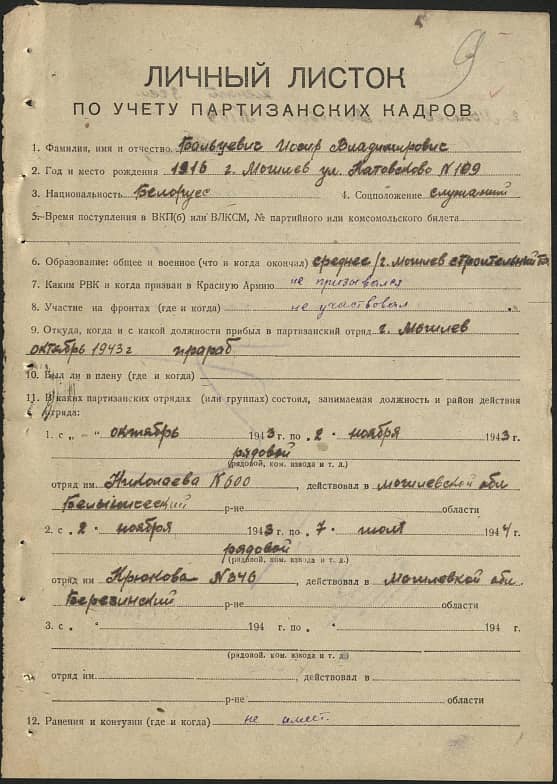 9
ЛИЧНЫЙ ЛИСТОК
ПО УЧЕТУ ПАРТИЗАНСКИХ КАДРОВ
1. Фамилия, имя и отчество Бальцевич Иосиф Владимирович
2. Год и место рождения 1916 г. Могилев ул. Катовского N 109
3. Национальность Белорус 4. Соцположение служащий
5. Время поступления в ВКП(б) или ВЛКСМ, № партийного или комсомольского билета
6. Образование: общее и военное (что и когда окончил) среднее/г. Могилев строительный
7. Каким РВК и когда призван в Красную Армию не призывался
8. Участие на фронтах (где и когда) не участвовал
9. Откуда, когда и с какой должности прибыл в партизанский отряд г. Могилев
октябрь 1943 г прораб
10. Был ли в плену (где и когда)
11. В каких партизанских отрядах (или группах) состоил, занимаемая должность и район действия
отряда:
1. с „ - " октябрь 1943 г. по „ 2 " ноября 1943 г.
рядовой
(рядовой, ком. взвода и т. д.)
отряд им. Николаева N 600, действовал в могилевской обл
Белыничский р-не области
2. с „ 2 " ноября 1943 г. по „ 7 " июля 1944 г.
рядовой
(рядовой, ком. взвода и т. д.)
отряд им Крюкова N 346, действовал в Могилевкой обл.
Березинский р-не области
3. с „ " 194 г. по „ " 194 г.
(рядовой, ком. взвода и т. д.)
отряд им. , действовал в
р-не области
12. Ранения и контузии (где и когда) не имеет.